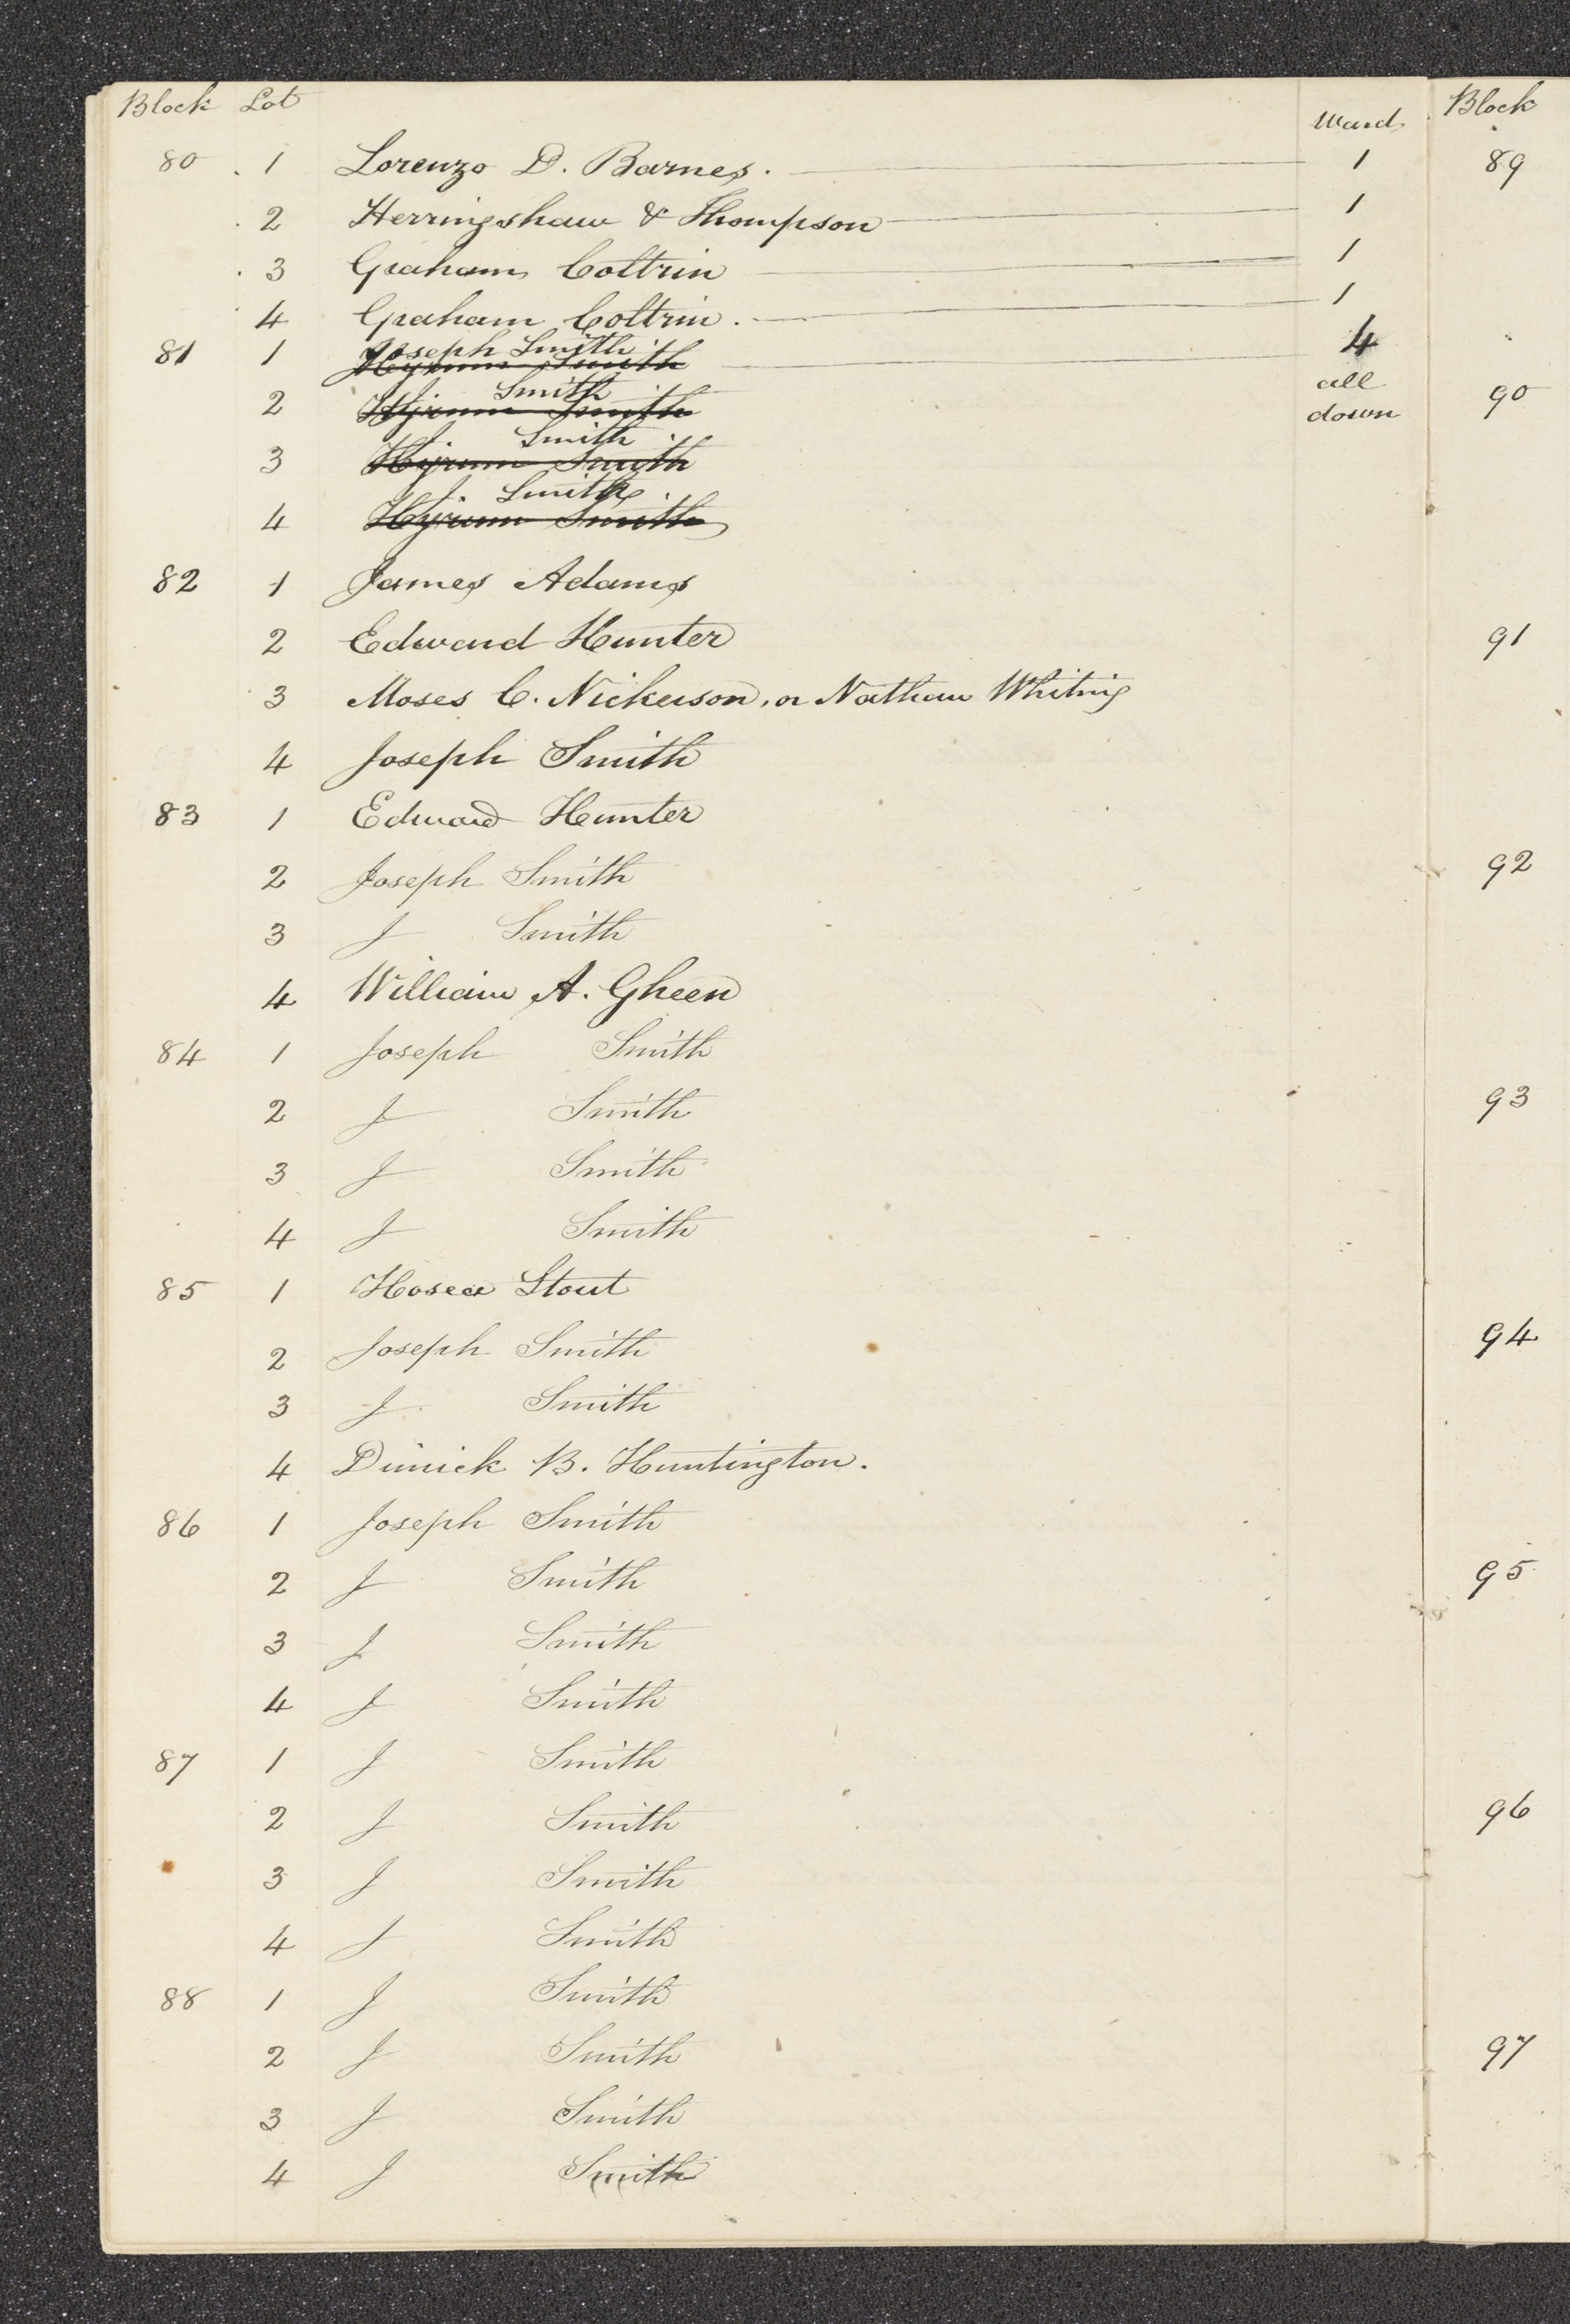 Block Lot Ward
80 1 Lorenzo D. Barnes. 1
2 Herringshaw & Thompson 1
3 Graham Coltrin 1
4 Graham Coltrin. 1
81 1 Joseph Smith 4
Hyrum Smith
J. Smith all
2 Hyrum Smith down
J. Smith
3 Hyrum Smith
J. Smith
4 Hyrum Smith
82 1 James Adams
2 Edward Hunter
3 Moses C. Nickerson, or Nathan Whiting
4 Joseph Smith
83 1 Edward Hunter
2 Joseph Smith
3 J Smith
4 William A. Gheen
84 1 Joseph Smith
2 J Smith
3 J Smith
4 J Smith
85 1 Hosea Stout
2 Joseph Smith
3 J. Smith
4 Dimick B. Huntington.
86 1 Joseph Smith
2 J Smith
3 J Smith
4 J Smith
87 1 J Smith
2 J Smith
3 J Smith
4 J Smith
88 1 J Smith
2 J Smith
3 J Smith
4 J Smith
Block
89
90
91
92
93
94
95
96
97